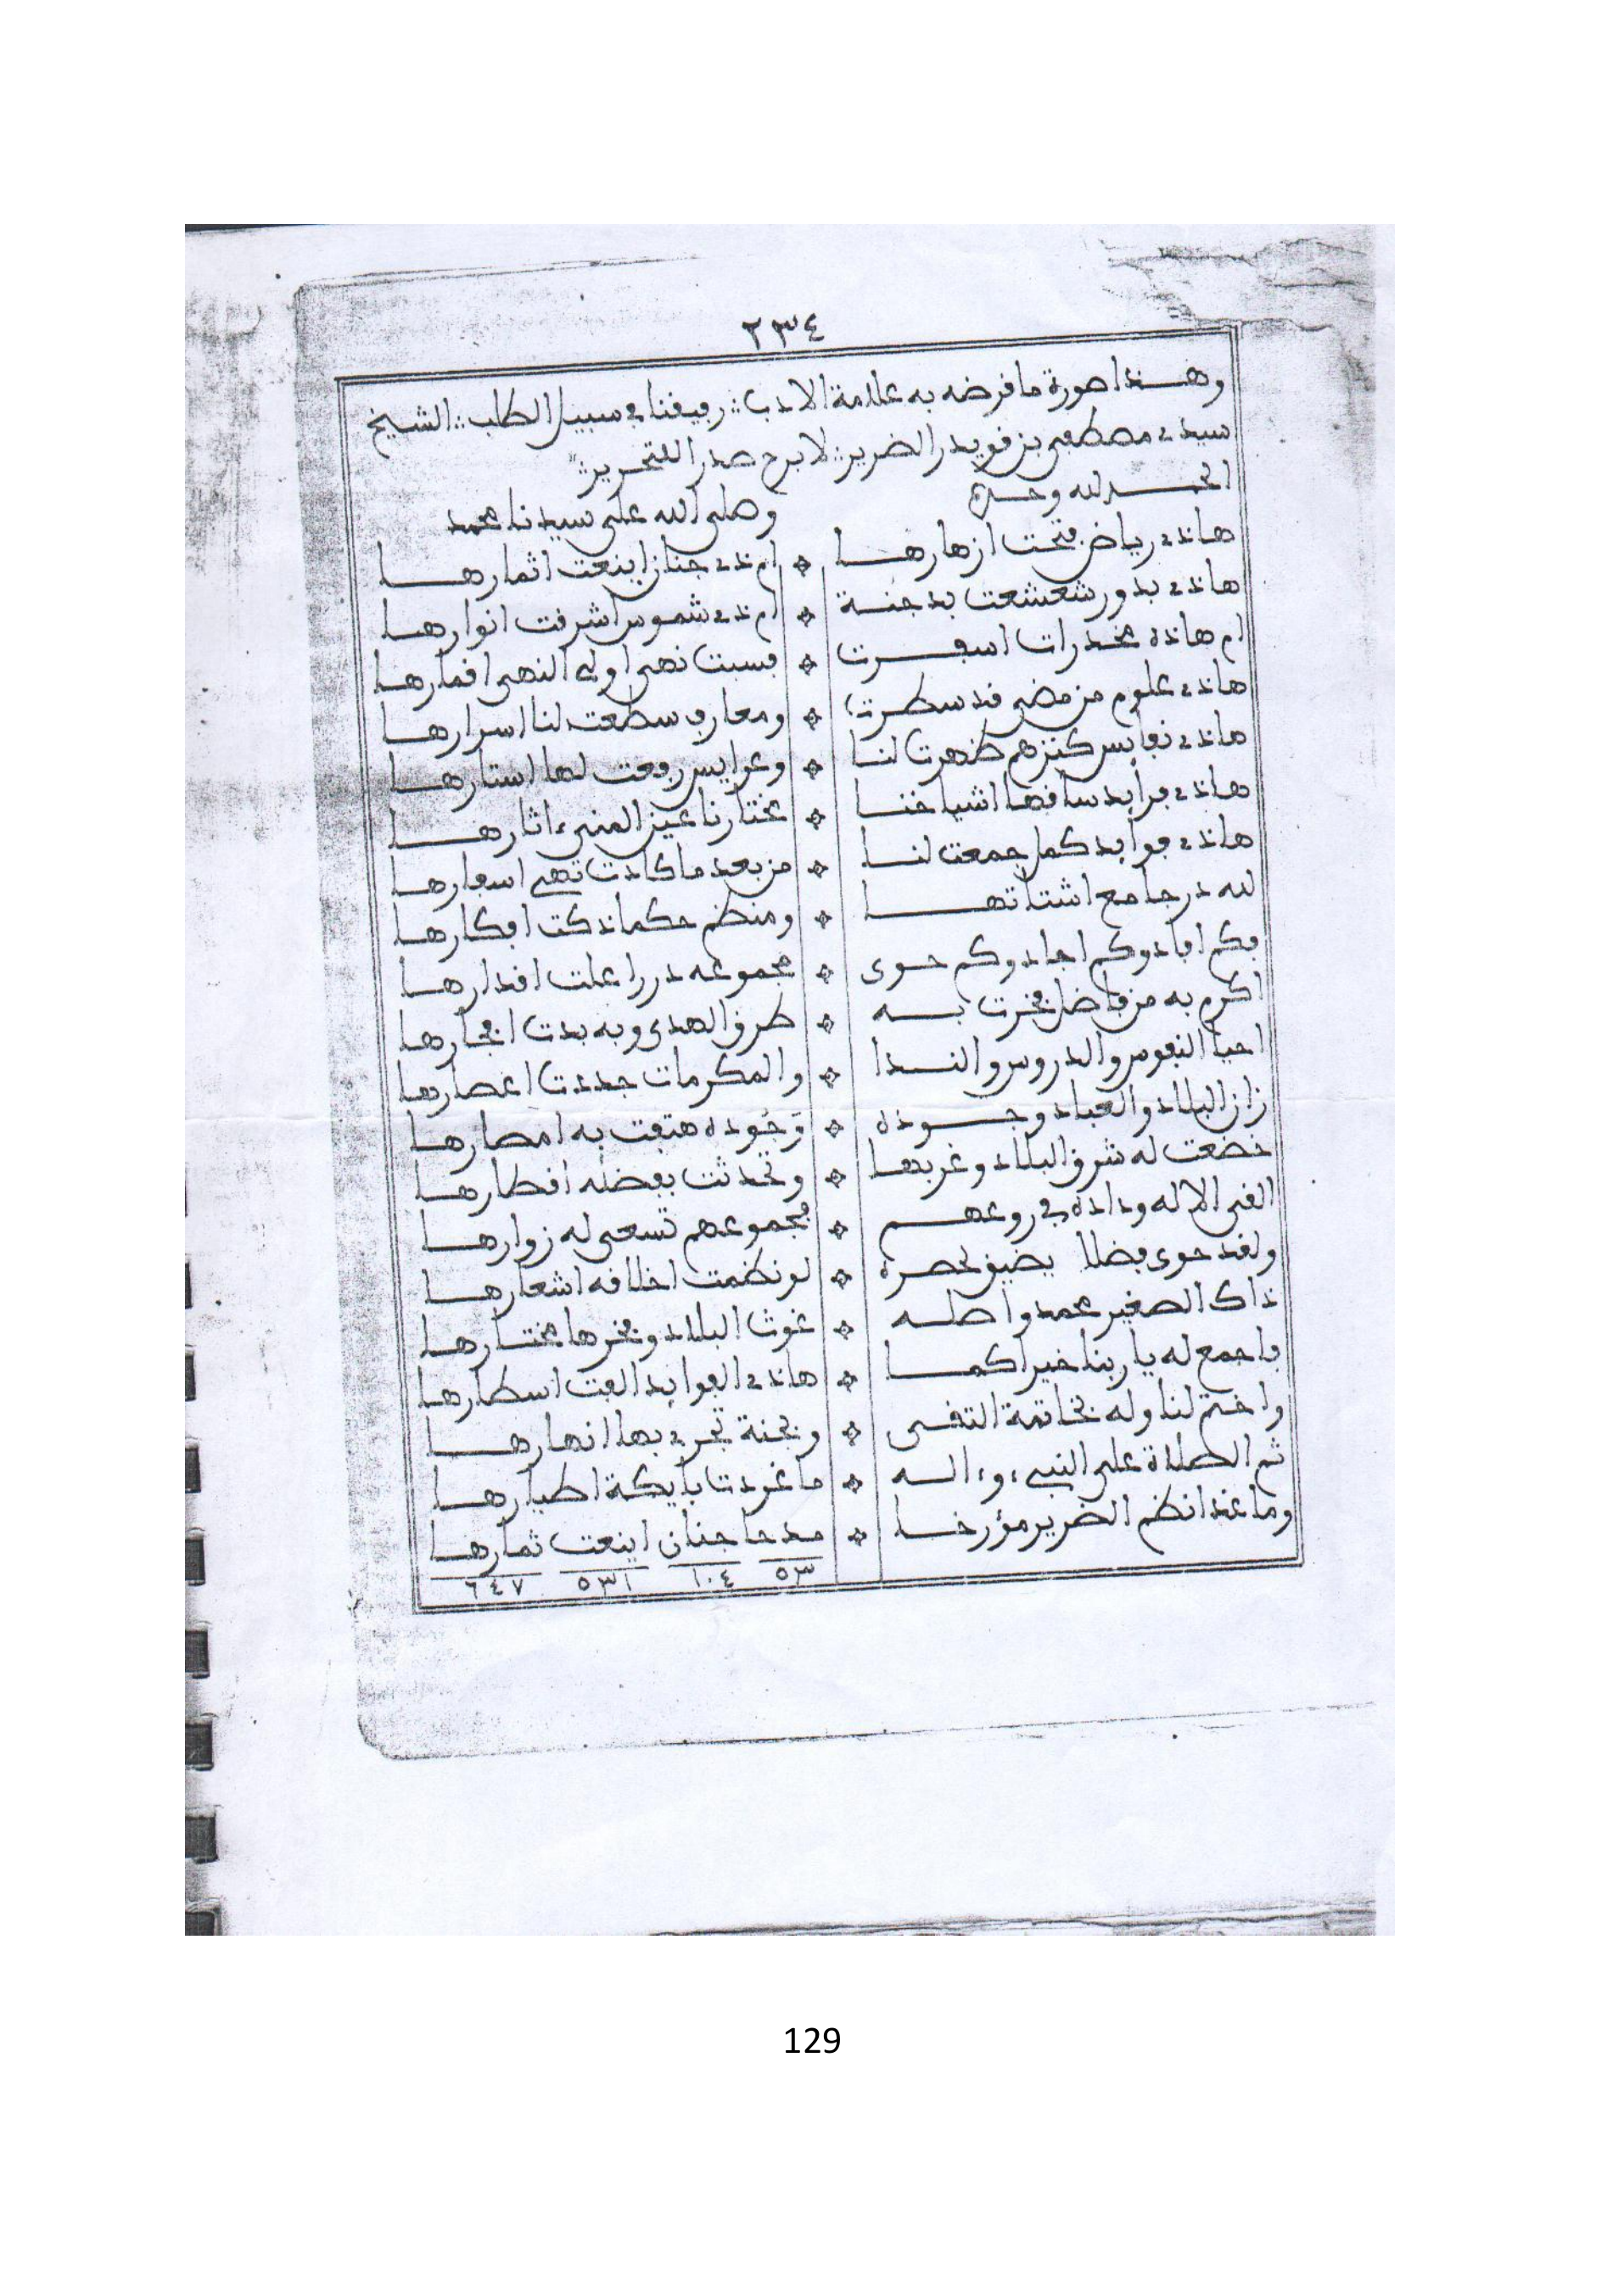 ٢٣٤
وهذا صورة ما قرضه به علامة الادب ؞ رفيقنا في سبيل الطلب ؞ الشيخ
سيدي مصطفى بن قويدر الضرير ؞ لا برح صدرا للتحرير ؞
الحمد لله وحده وصلى الله على سيدنا محمد
هاذي رياض فتحت ازهارها ۞ ام ذي جنان اينعت اثمارها
هاذي بدور شعشعت بدجنة ۞ ام ذي شموس اشرقت انوارها
ام هاذه مخدرات اسفرت ۞ فسبت نهى اولي النهى اقمارها
هاذي علوم من مضى قد سطرت ۞ ومعارف سطعت لنا اسرارها
هاذي نفايس كنزهم ظهرت لنا ۞ وعرايس رفعت لها استارها
هاذي فرايد ساقها اشياخنا ۞ مختارنا عين المنى ءاثارها
هاذي فوايد كمل جمعت لنا ۞ من بعد ما كادت تهي اسفارها
لله در جامع اشتاتها ۞ ومنظم حكما ذكت افكارها
فكم افاد وكم اجاد وكم حوى ۞ مجموعه دررا علت اقدارها
اكرم به من فاضل فخرت به ۞ طرق الهدى وبه بدت افخارها
احيا النفوس والدروس والندا ۞ والمكرمات جددت اعصارها
زان البلاد والعباد وجوده ۞ وَجُوده هتفت به امصارها
خضعت له شرق البلاد وغربها ۞ وتحدثت بفضله اقطارها
القى الاله وداده في روعهم ۞ فجموعهم تسعى له زوارها
ولقد حوى فضلا يضيق لحصره ۞ لو نظمت اخلاقه اشعارها
ذاك الصغير محمد واصله ۞ غوث البلاد وفخرها مختارها
فاجمع له يا ربنا خيرا كما ۞ هاذي الفوايد الفت اسطارها
واختم لنا وله بخاتمة التقى ۞ وبجنة تجري بها انهارها
ثم الصلاة على النبي وءاله ۞ ما غردت بأيكة اطيارها
وما غدا نظم الضرير مؤرخا ۞ مدحا جنان اينعت ثمارها
٥٣ ١٠٤ ٥٣١ ٦٤٧
129